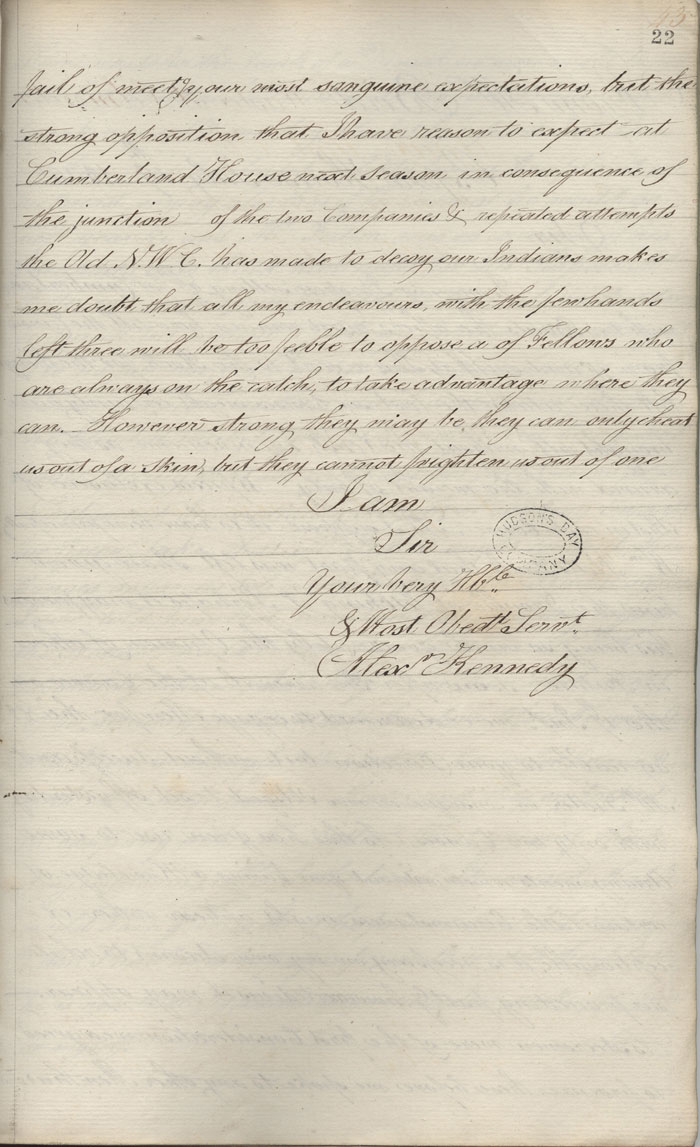 22
fail of meetg your most sanguine expectations, but the
strong opposition that I have reason to expect at
Cumberland House next season in consequence of
the junction of the two Companies & repeated attempts
the Old N.W.C. has made to decoy our Indians makes
me doubt that all my endeavours, with the few hands
left three will be too feeble to oppose a of Fellows who
are always on the catch, to take advantage where they
can. However strong they may be, they can only cheat
us out of a skin, but they cannot frighten us out of one
I am
Sir
HUDSON'S BAY COMPANY
Your very Hble
& Most Obedt. Servt.
Alexr Kennedy